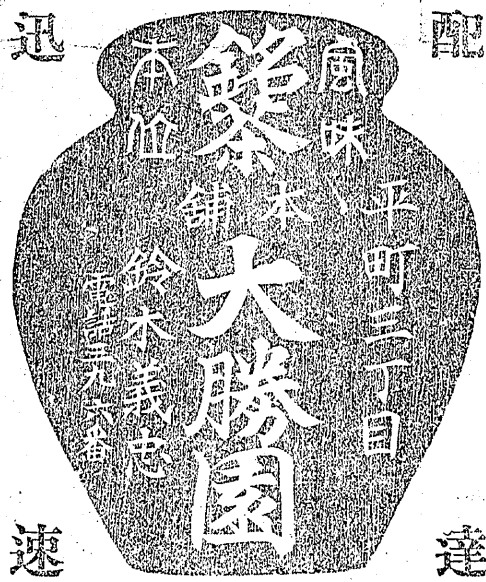 配達
迅速
風味
本位
本舗
平町三丁目
大勝園
鈴木義忠
電話三九六番